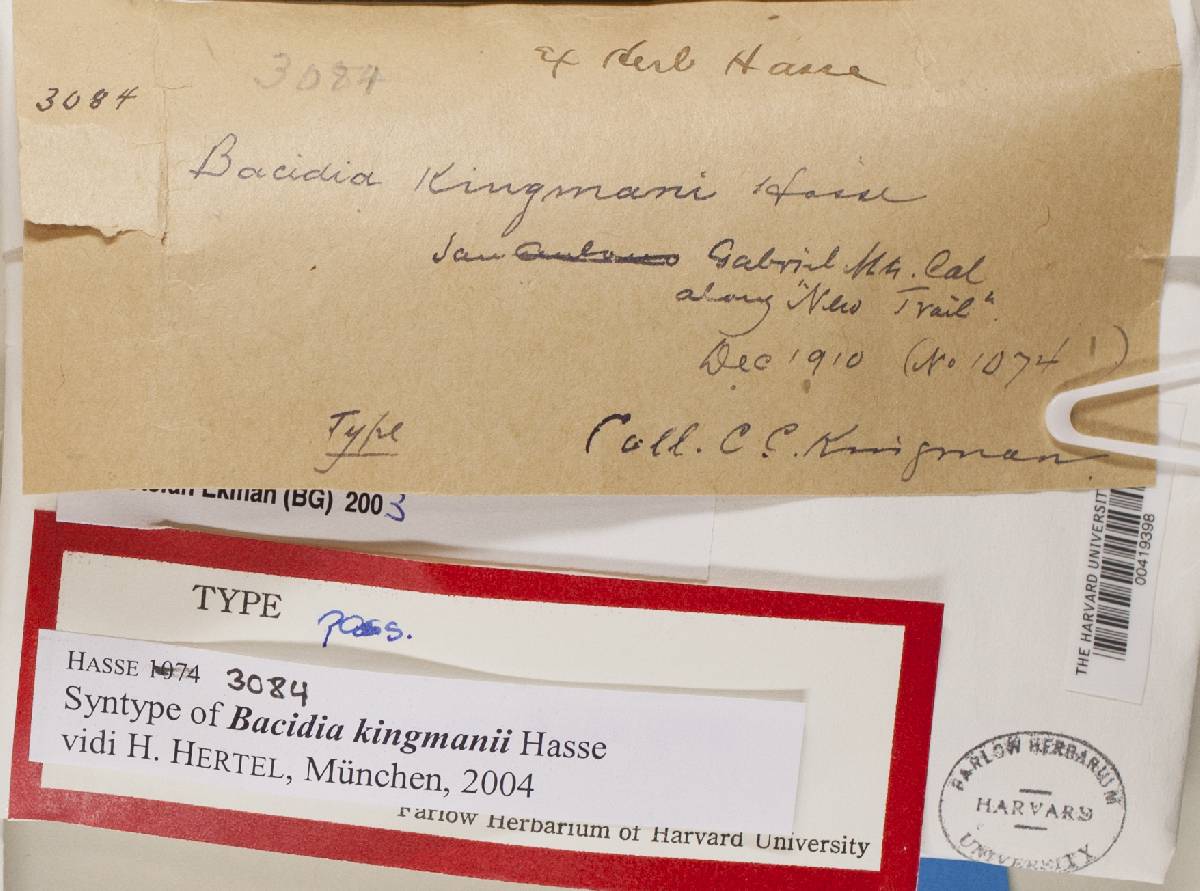 3084
3084
Ex Herb Hasse
Bacidia Kingmani Hasse
San Antonio Gabriel Mts. Cal
along "New Trail".
Dec 1910 (No 1074)
Type
Coll. C. C. Kingman.
Ekman (BG) 2003
TYPE poss.
HASSE 1074 3084
Syntype of Bacidia kingmanii Hasse
vidi H. HERTEL, München, 2004
Farlow Herbarium of Harvard University
THE HARVARD UNIVERSITY
00419398
FARLOW HERBARIUM
HARVARD
UNIVERSITY